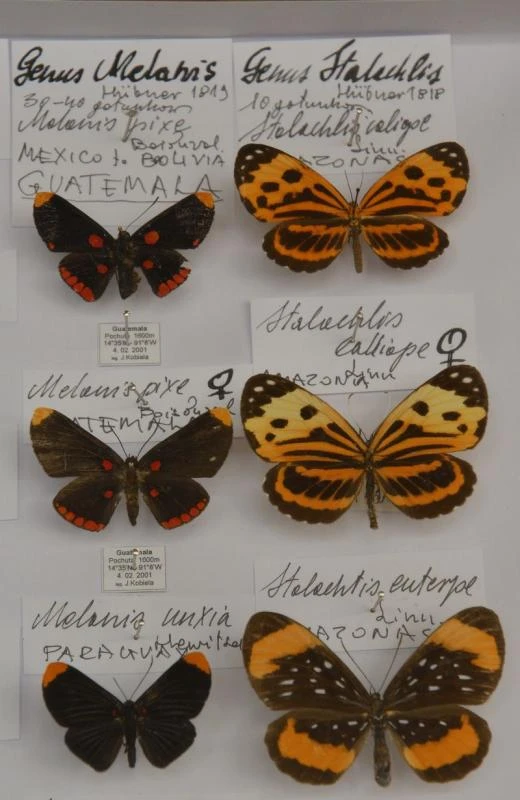 Genus Melanis
Hübner 1819
30-40 gatunków
Melanis pixe
Boisduval
MEXICO to BOLIVIA
GUATEMALA
Guatemala
Pochuta 1600m
14°35'N - 91°6'W
4. 02. 2001
leg. J Kobiela
Melanis pixe ♀
Boisduval
GUATEMALA
Guatemala
Pochuta 1600m
14°35'N - 91°6'W
4. 02. 2001
leg. J Kobiela
Melanis unxia
Hewitson
PARAGUAY
Genus Stalachtis
Hübner 1818
10 gatunków
Stalachtis caliope
Linn.
AMAZONAS
Stalachtis
Calliope ♀
AMAZONIA Linn
Stalachtis euterpe
Linn.
AMAZONAS